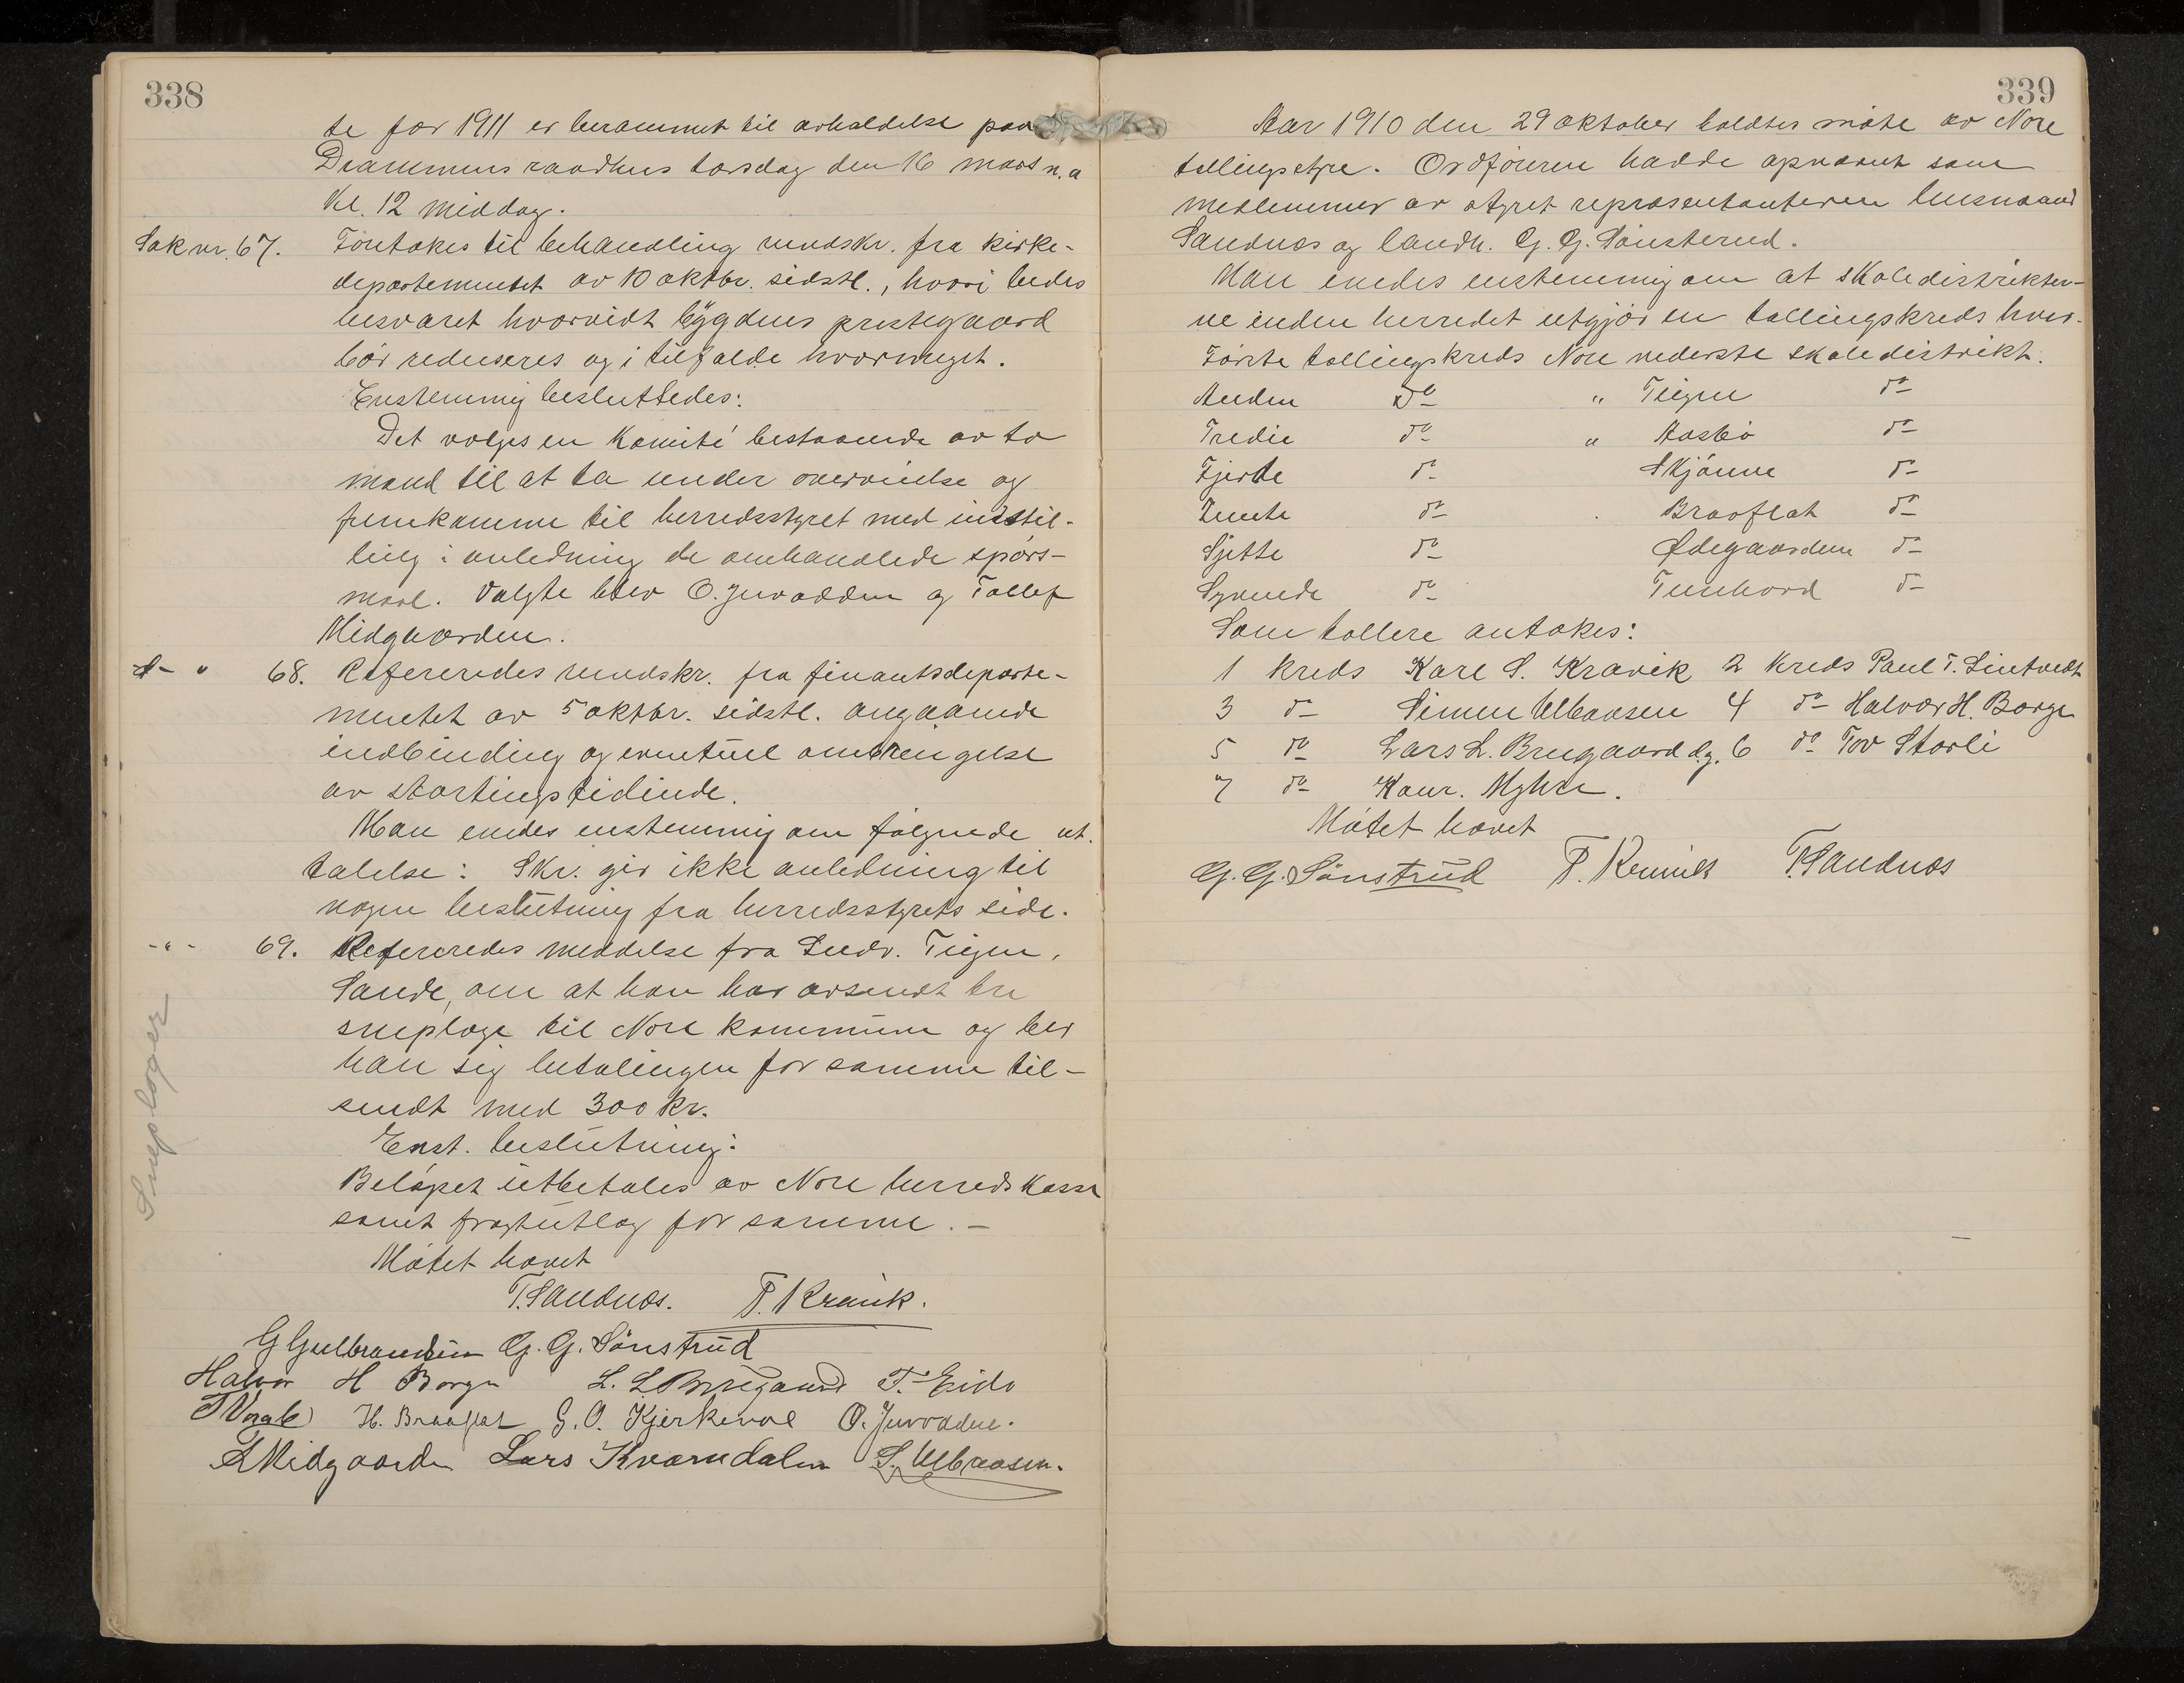 338
te for 1911 er berammet til avholdelse paa
Drammens raadhus torsdag den 16 mars n. a
kl. 12 middag.
Sak nr. 67. Foretokes til behandling rundskr. fra kirke-
departementet av 10 oktbr. sidstl., hvori bedes
besvaret hvorvidt bygdens prestegaard
bör reduseres og i tilfælde hvormeget.
Enstemmig besluttedes:
Det vælges en komité bestaaende av to
mand til at ta under overveielse og
fremkomme til herredsstyret med indstil-
ling i anledning de omhandlede spörs-
maal. Valgte blev O. Juvodden og Tollef
Midgaarden.
d- " 68. Refereredes rundskr. fra finantsdeparte-
mentet av 5 oktbr. sidstl. angaaende
indbinding og eventuel ombringelse
av stortingstidende.
Man enedes enstemmig om fölgende ut-
talelse: Skr. gir ikke anledning til
nogen beslutning fra herredsstyrets side.
-"- 69. Refereredes meddelse fra Ludv. Teigen,
Sande, om at han har avsendt tre
sneploge til Nore kommune og ber
han sig betalingen for samme til-
sendt med 300 kr.
Enst. beslutning:
Belöpet utbetales av Nore herredskasse
samt fragtutlæg for samme. -
Sneploger
Mötet hævet
T. Sandnæs. T. Kravik.
G Gulbrandsen G. G. Sönsterud
Halvor H Borge L. L Brugaard T. Eido
H. Braaflat G. O. Kjerkevol O. Juvodden.
T Midgaarden Lars Kvarndalen S. Ulbaasen.
339
Aar 1910 den 29 oktober holdtes möte av Nore
tellingstyre. Ordföreren hadde opnævnt som
medlemmer av styret repræsentanterne husmand
Sandnæs og landh. G. G. Sönsterud.
Man enedes enstemmig om at skoledistrikter-
ne inden herredet utgjör en tællingskreds hver.
Förste tællingskreds Nore nederste skoledistrikt.
Anden do " Teigen do
Tredie do " Aasbö do
Fjerde do Skjönne do
Femte do Braaflat do
Sjette do Ødegaarden do
Syvende do Tunhovd do
Som tællere antokes:
1 kreds Karl S. Kravik 2 kreds Paul T. Sintvedt
3 do Simen Ulbaasen 4 do Halvor H. Borge
5 do Lars L. Brugaard d.y. 6 do Tov Storli
7 do Konr. Myhre.
Mötet hævet
G. G. Sönsterud T. Kravik T. Sandnæs